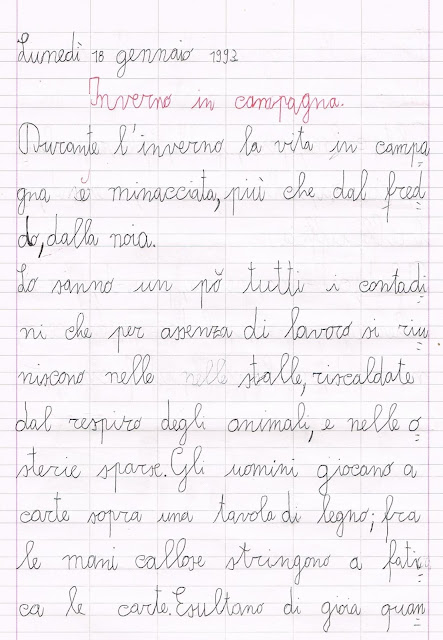 Lunedì 18 gennaio 1993
Inverno in campagna.
Durante l'inverno la vita in campa
gna è minacciata, più che dal fred=
do, dalla noia.
Lo sanno un pò tutti i contadi=
ni che per assenza di lavoro si riu=
niscono nelle nelle stalle, riscaldate
dal respiro degli animali, e nelle o=
sterie sparse. Gli uomini giocano a
carte sopra una tavola di legno; fra
le mani callose stringono a fati=
ca le carte. Esultano di gioia quan=